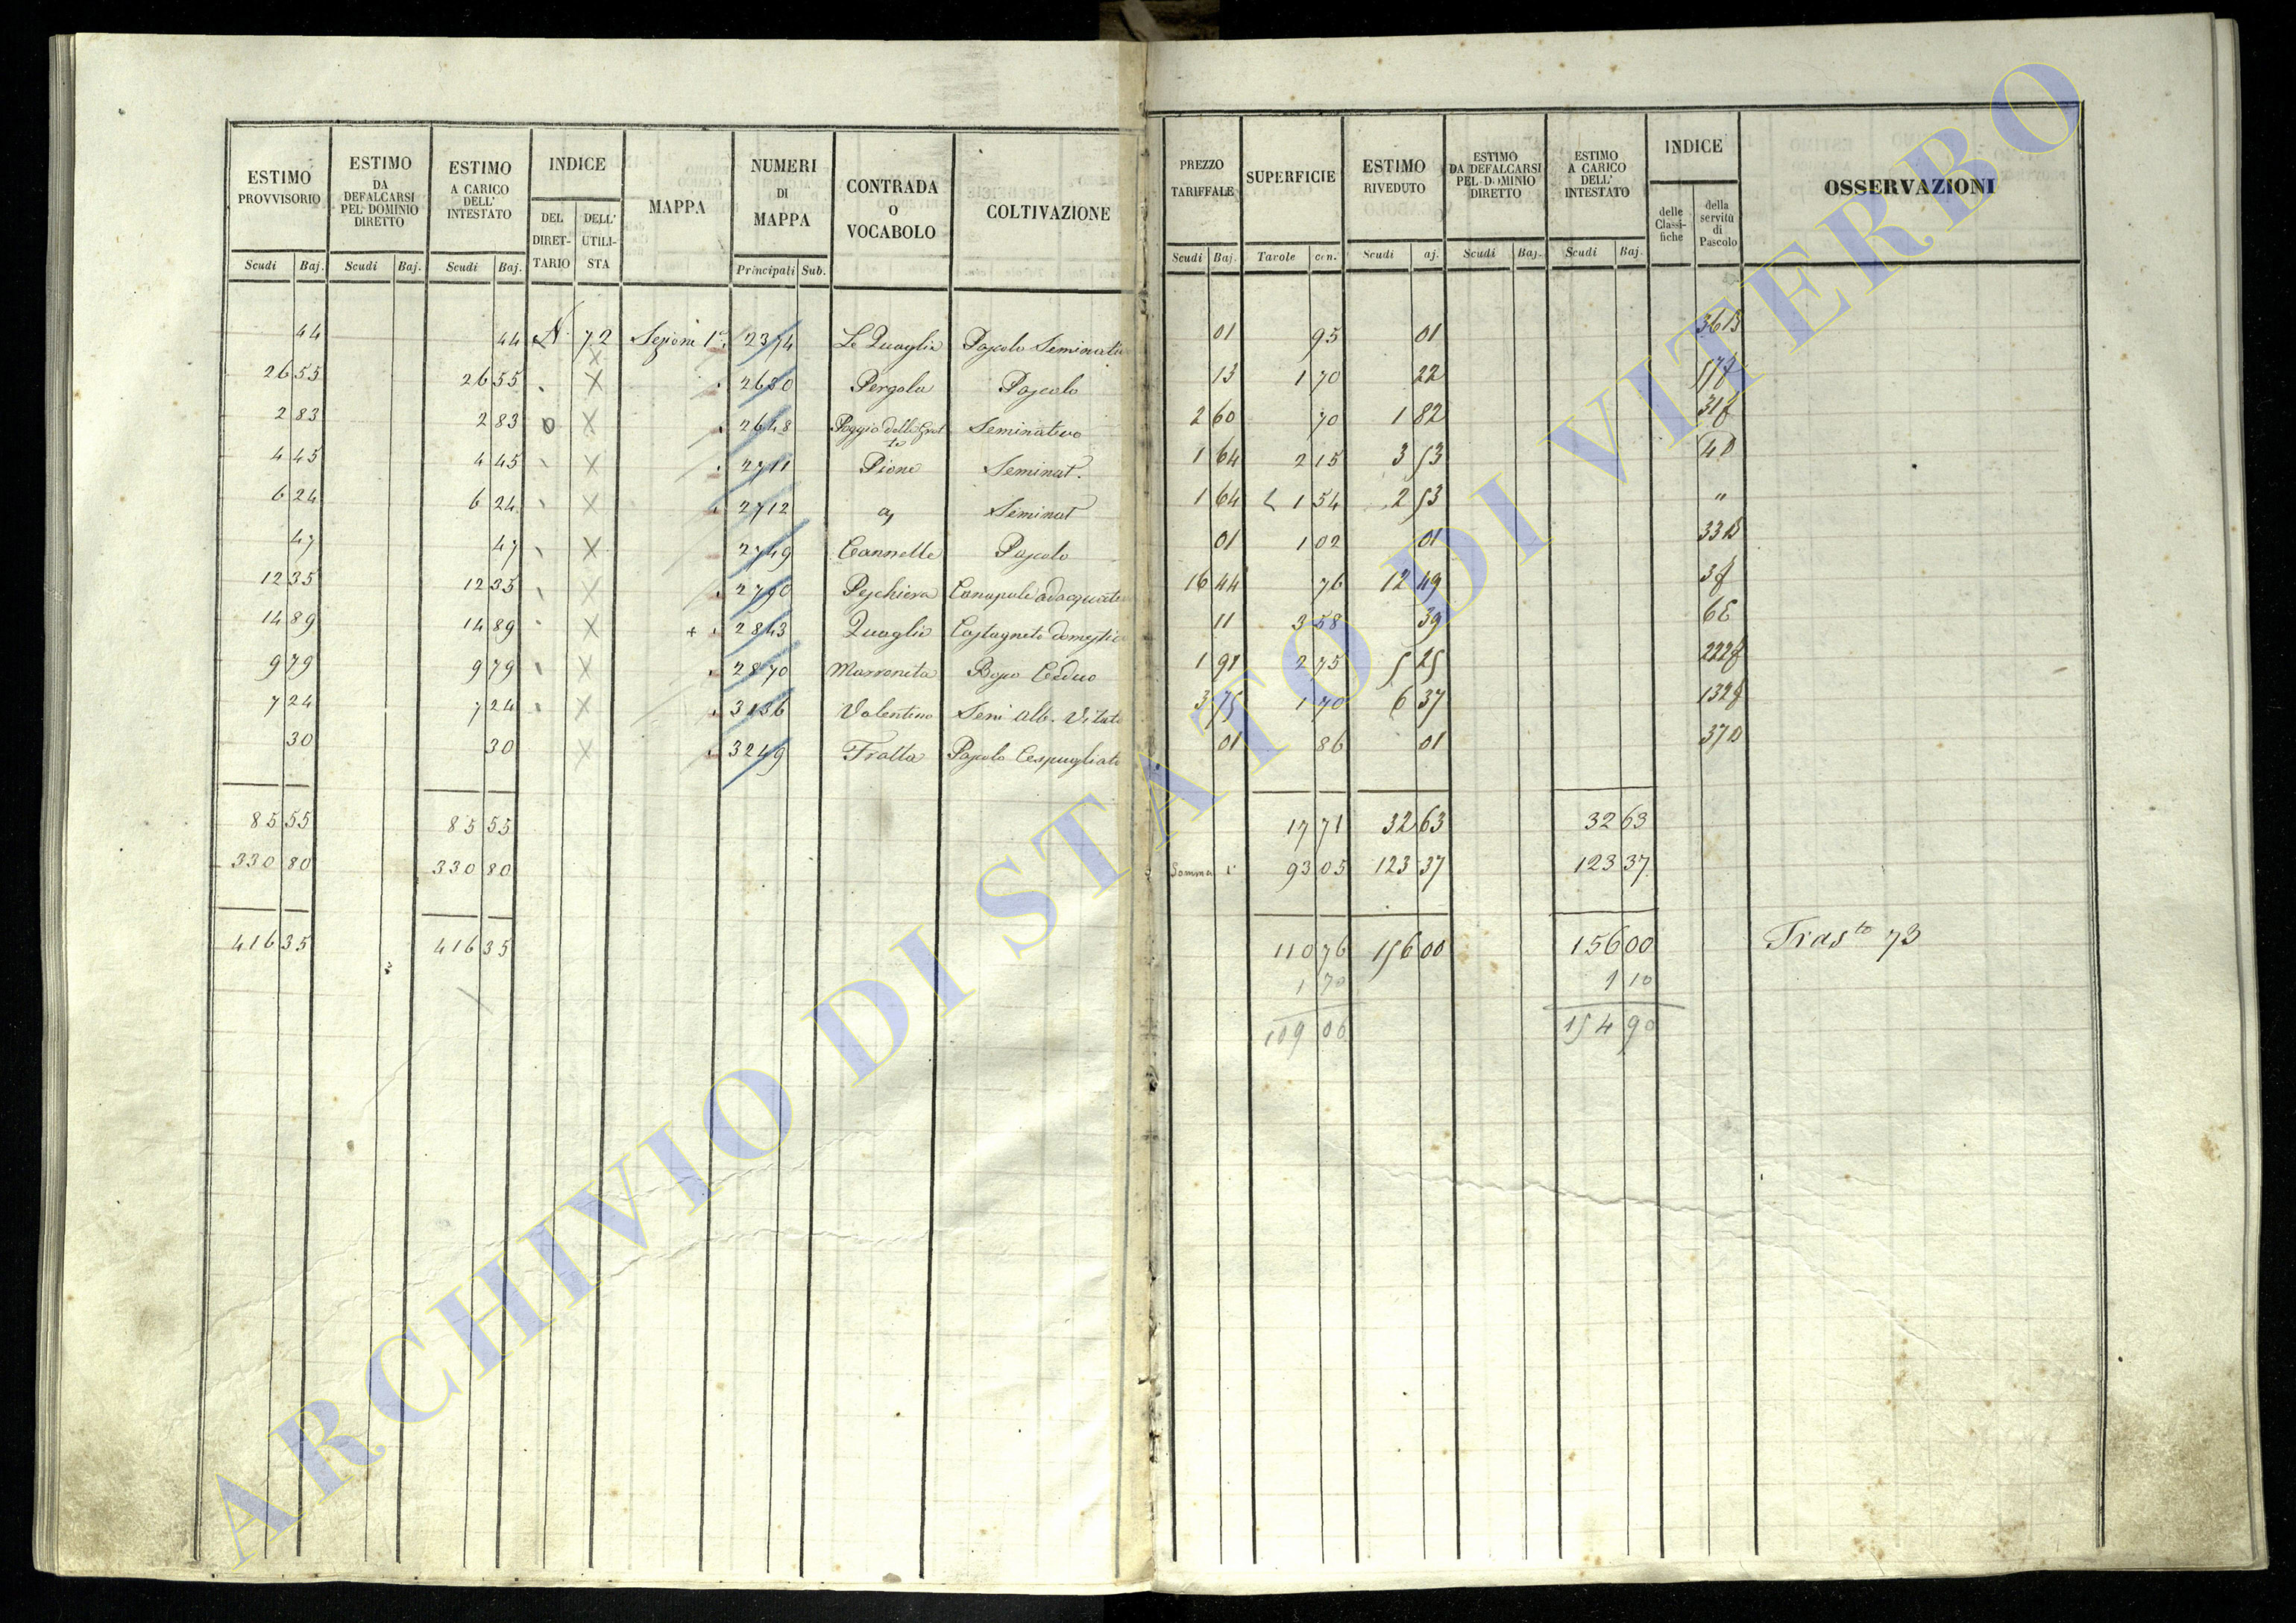 ESTIMO PROVVISORIO | ESTIMO DA DEFALCARSI PEL DOMINIO DIRETTO | ESTIMO A CARICO DELL' INTESTATO | INDICE | MAPPA | NUMERI DI MAPPA | CONTRADA O VOCABOLO | COLTIVAZIONE | PREZZO TARIFFALE | SUPERFICIE | ESTIMO RIVEDUTO | ESTIMO DA DEFALCARSI PEL DOMINIO DIRETTO | ESTIMO A CARICO DELL' INTESTATO | INDICE | OSSERVAZIONI
DEL DIRET-TARIO | DELL' UTILI-STA | delle Classi-fiche | della servitù di Pascolo
Scudi | Baj. | Scudi | Baj. | Scudi | Baj. | Principali | Sub. | Scudi | Baj. | Tavole | cen. | Scudi | aj. | Scudi | Baj. | Scudi | Baj.
44 | 44 | N. | 72 | Sezione 1ª | 2374 | Le Quaglie | Pascolo Seminativo | 01 | 95 | 01 | 36B
26 55 | 26 55 | X | 2680 | Pergola | Pascolo | 13 | 1 70 | 22
2 83 | 2 83 | X | 2648 | Poggio della Grotte | Seminativo | 2 60 | 70 | 1 82 | 31f
4 45 | 4 45 | X | 2711 | Piano | Seminat. | 1 64 | 2 15 | 3 53 | 4D
6 24 | 6 24 | X | 2712 | Seminat | 1 64 | 1 54 | 2 53 | "
47 | 47 | X | 2749 | Cannelle | Pascolo | 01 | 1 02 | 01 | 33B
12 35 | 12 35 | X | 2790 | Peschiera | Canapule adacquato | 16 44 | 76 | 12 49 | 3f
14 89 | 14 89 | X | + | 2843 | Quaglie | Castagneto domestico | 11 | 3 58 | 39 | 6E
9 79 | 9 79 | X | 2870 | Marroneta | Bosco Ceduo | 1 91 | 2 75 | 5 25 | 222f
7 24 | 7 24 | X | 3136 | Valentino | Sem. alb. Vitato | 3 75 | 1 70 | 6 37 | 132f
30 | 30 | X | 3249 | Fratta | Pascolo Cespugliato | 01 | 86 | 01 | 37B
85 55 | 85 55 | 17 71 | 32 63 | 32 63
330 80 | 330 80 | Somma | 93 05 | 123 37 | 123 37
416 35 | 416 35 | 110 76 | 156 00 | 156 00 | Trasto 73
1 70 | 1 10
109 06 | 154 90
ARCHIVIO DI STATO DI VITERBO